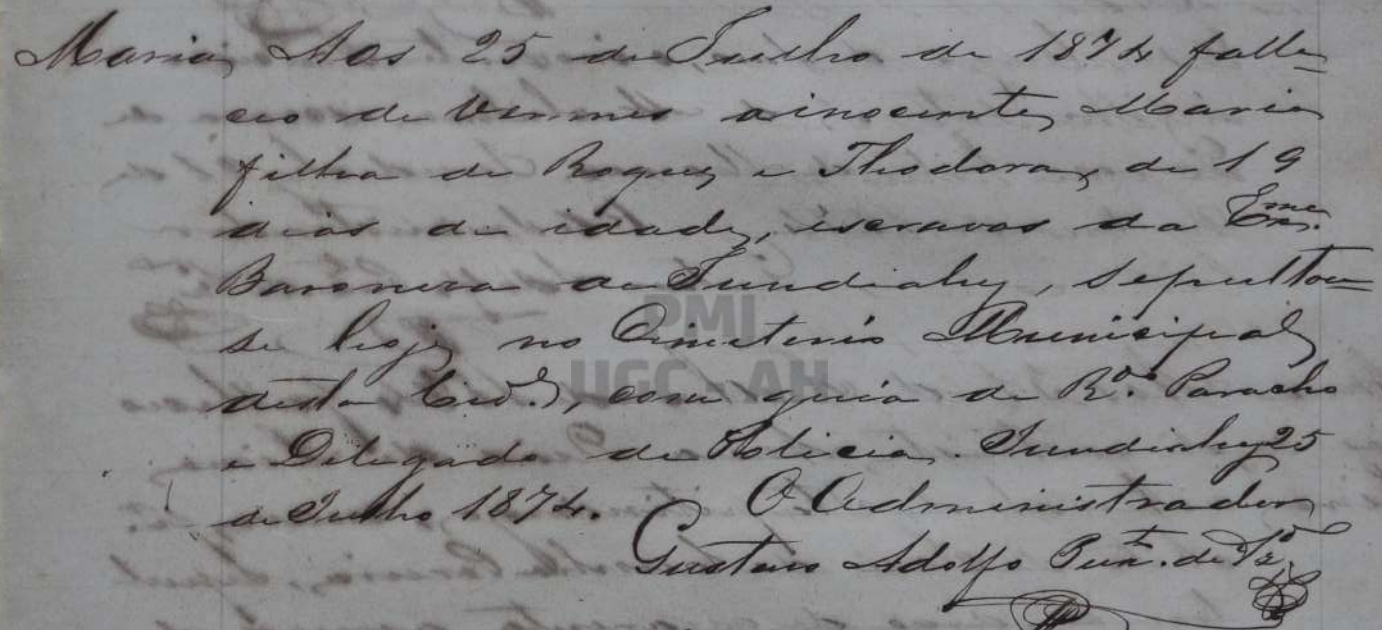 Maria, Aos 25 de Julho de 1874 falle=
ceo de vermes a inocente, Maria
filha de Roque, e Theodora, de 19
dias de idade, escravos da Exma.
Baroneza de Jundiahy, sepultou=
se hoje, no Cimiterio Municipal
desta Cide., com guia de Rdo. Paracho
e Delegado de Policia. Jundiahy 25
de Julho 1874. O Administrador
Gustavo Adolfo
PMI
UGC - AH